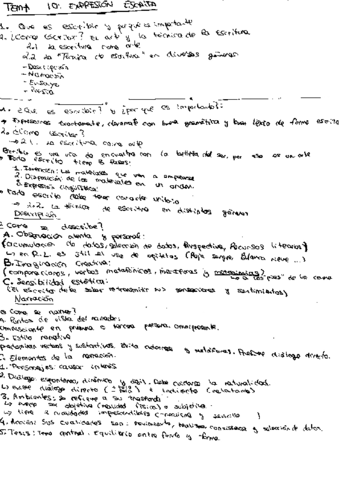 TEMA 10: EXPRESIÓN ESCRITA
1. Que es escribir y porque es importante
2. ¿Como escribir? El art y la técnica de la escritura
2.1 la escritura como arte
2.2 La "Técnica de escritura" en diversos géneros
- Descripción
- Narración
- Ensayo
- Poesía
1. ¿Qué es escribir? y ¿por qué es importante?:
→ Expresarse exactamente, con buena gramática y buen léxico de forma escrita
2. ¿Cómo escribir?
→ 2.1. La escritura como arte
Escribir es una vía de encuentro con la belleza del ser, por eso es un arte
Todo escrito tiene 3 fases:
1. Invención: los materiales que van a componerse
2. Disposición de los materiales en un orden
3. Expresión lingüística:
Todo escrito debe tener carácter unitario
→ 2.2. La técnica de escritura en distintos géneros
Descripción
Como se describe?
A. Observación atenta y personal:
(acumulación de datos, selección de datos, Perspectiva, Recursos literarios)
↳ en R.L. es útil el uso de epítetos (Rojo sangre Blanca nieve ...)
B. Imaginación Creativa:
(comparaciones, verbos metafóricos, metáforas y
C. Sensibilidad estética:
(El escritor debe saber transmitir sus sensaciones y sentimientos)
Narración
Como se narra?
A. Puntos de vista del narrador:
Omnisciente en primera o tercera persona, omnipresente.
B. Estilo narrativo
verbos y sustantivos. Evita adornos y metáforas. Prefiere diálogo directo.
C. Elementos de la narración.
1. Personajes: causar interés
2. Dialogo: espontáneo, dinámico y ágil. Debe cuidarse la naturalidad.
↳ diálogo directo (-) e indirecto (relatamos)
3. Ambientes: se refiere a su trasfondo
↳ puede ser objetiva (realidad física) o subjetiva.
↳ tiene 2 cualidades imprescindibles (-realidad y sencillo)
4. Acción: Sus cualidades son: movimiento, y selección de datos.
5. Tesis: Tema central. Equilibrio entre fondo y forma.